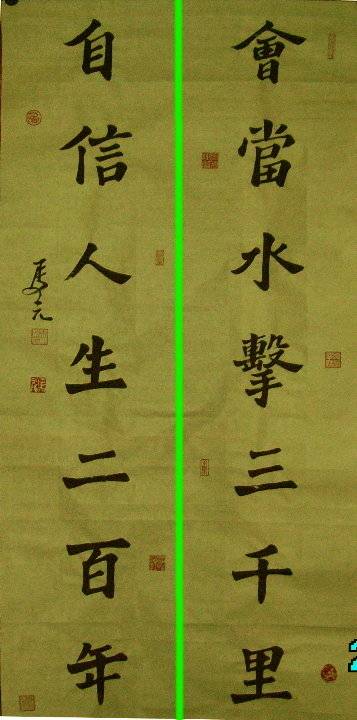 會當水擊三千里
自信人生二百年